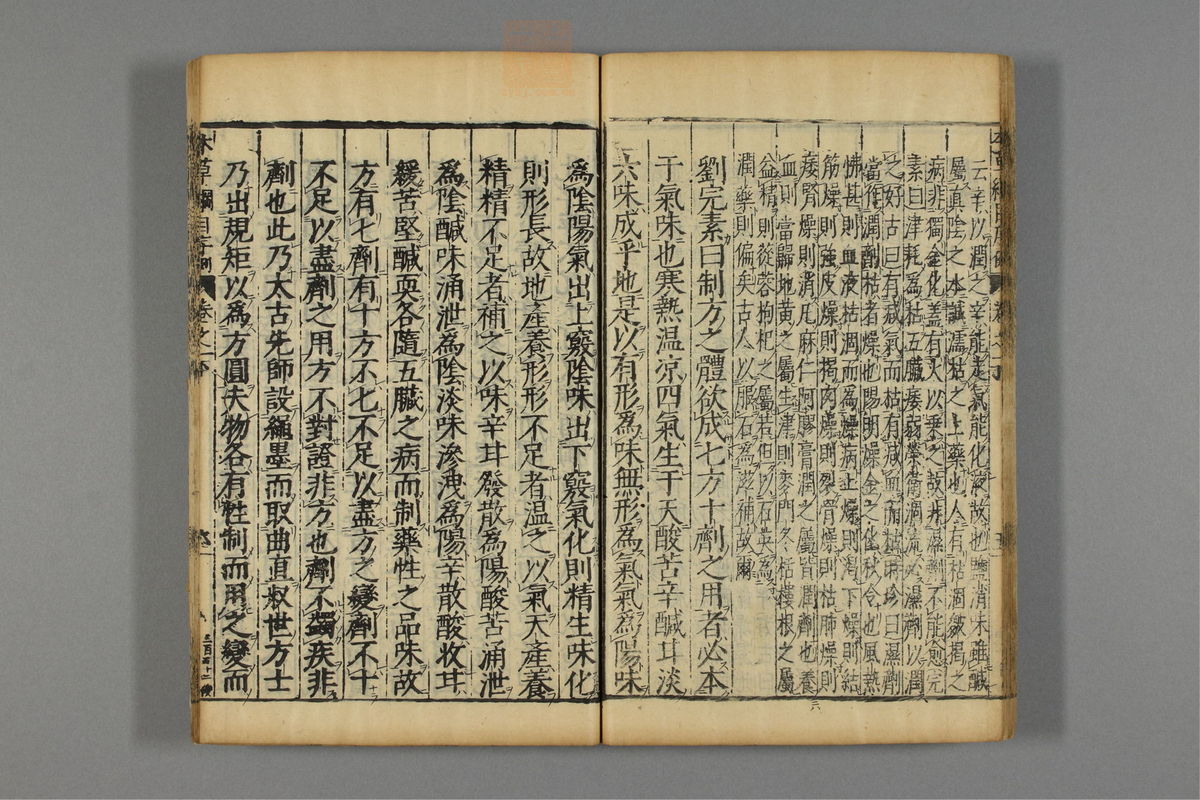 云辛以潤之辛能走氣能化液故也鹽消味雖鹹
屬眞陰之本誠濡枯之上藥也人有枯涸皴揭之
病非獨金化蓋有火以乗之故非濕劑不能愈完
素曰津耗為枯五臟痿弱榮衛涸流必濕劑以潤
之好古曰有減氣而枯有減血而枯時珍曰濕劑
當作潤劑枯者燥也陽明燥金之化秋令也風熱
怫甚則血液枯涸而為燥病上燥則渴下燥則結
筋燥則強皮燥則揭肉燥則裂骨燥則枯肺燥則
痿腎燥則消凡麻仁阿膠膏潤之屬皆潤劑也養
血則當歸地黄之屬生津則麥門冬栝樓根之屬
益精則蓯蓉枸杞之屬若但以石英為
潤藥則偏矣古人以服石為滋補故爾
劉完素曰制方之體欲成七方十劑之用者必本
于氣味也寒熱温凉四氣生于天酸苦辛鹹甘淡
六味成乎地是以有形為味無形為氣氣為陽味
為陰陽氣出上竅陰味出下竅氣化則精生味化
則形長故地產養形形不足者温之以氣天產養
精精不足者補之以味辛甘發散為陽酸苦涌泄
為陰鹹味涌泄為陰淡味滲洩為陽辛散酸收甘
緩苦堅鹹耎各隨五臟之病而制藥性之品味故
方有七劑有十方不七不足以盡方之變劑不十
不足以盡劑之用方不對證非方也劑不蠲疾非
劑也此乃太古先師設繩墨而取曲直叔世方士
乃出規矩以為方圓夫物各有性制而用之變而
本草綱目序例
卷之一